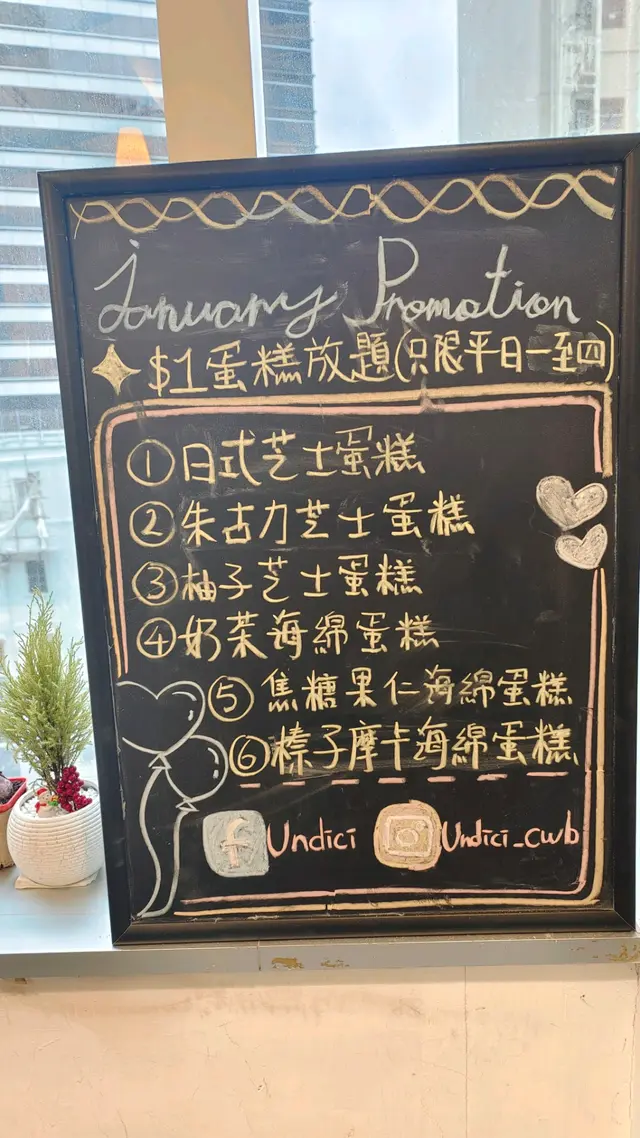 January Promotion
$1蛋糕放題(只限平日一至四)
①日式芝士蛋糕
②朱古力芝士蛋糕
③柚子芝士蛋糕
④奶茶海綿蛋糕
⑤焦糖果仁海綿蛋糕
⑥榛子摩卡海綿蛋糕
f Undici Undici_cwb